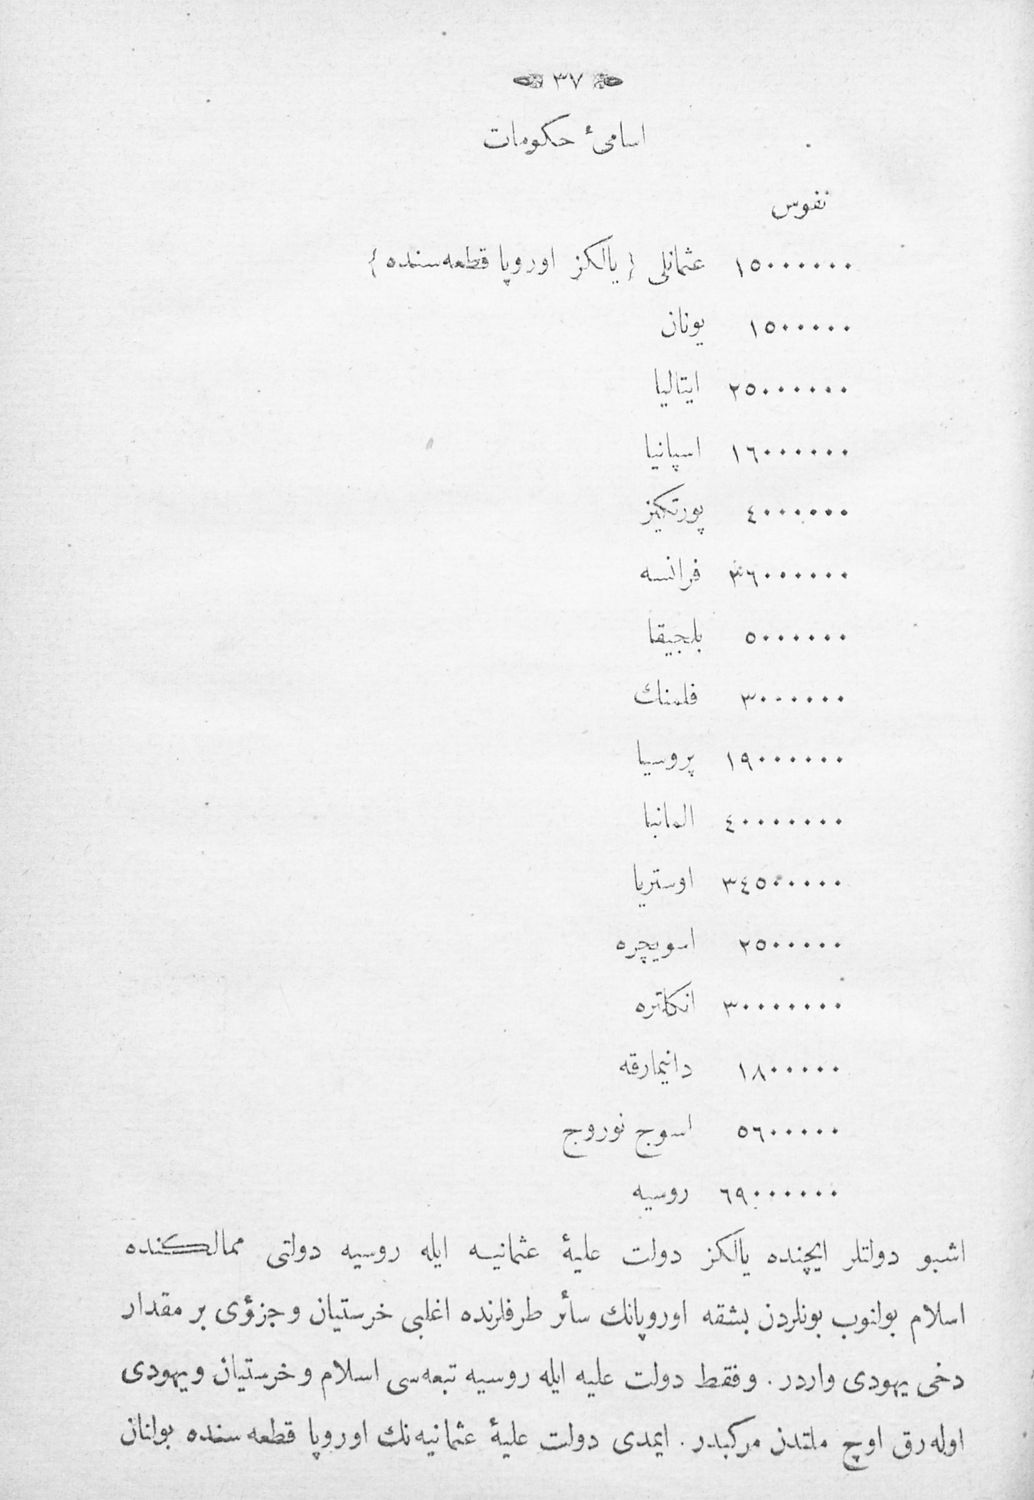 ٣٧
اسامئ حكومات
نفوس
١٥٠٠٠٠٠٠ عثمانلى {يالكز اوروپا قطعه‌سنده}
١٥٠٠٠٠٠ يونان
٢٥٠٠٠٠٠٠ ايتاليا
١٦٠٠٠٠٠٠ اسپانيا
٤٠٠٠٠٠٠ پورتكيز
٣٦٠٠٠٠٠٠ فرانسه
٥٠٠٠٠٠٠ بلجيقا
٣٠٠٠٠٠٠ فلمنك
١٩٠٠٠٠٠٠ پروسيا
٤٠٠٠٠٠٠٠ المانيا
٣٤٥٠٠٠٠٠ اوستريا
٢٥٠٠٠٠٠ اسويچره
٣٠٠٠٠٠٠٠ انكلتره
١٨٠٠٠٠٠ دانيمارقه
٥٦٠٠٠٠٠ اسوج نوروج
٦٩٠٠٠٠٠٠ روسيه
اشبو دولتلر ايچنده يالكز دولت عليۀ عثمانيه ايله روسيه دولتى ممالكنده
اسلام بولنوب بونلردن بشقه اوروپانك سائر طرفلرنده اغلبى خرستيان وجزؤى بر مقدار
دخى يهودى واردر . وفقط دولت عليه ايله روسيه تبعه‌سى اسلام وخرستيان ويهودى
اوله‌رق اوچ ملتدن مركبدر . ايمدى دولت عليۀ عثمانيه‌نك اوروپا قطعه سنده بولنان